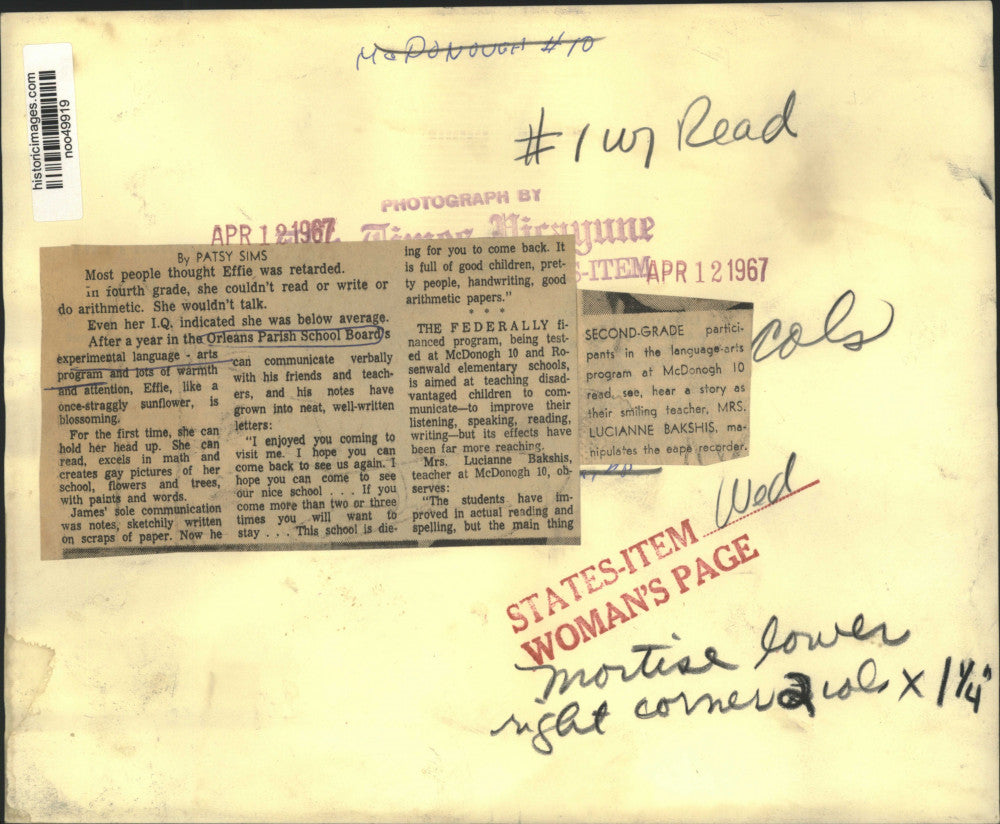 McDONOUGH #10
historicimages.com
noo49919
#1 w/ Read
PHOTOGRAPH BY
APR 12 1967
Times Picayune
S-ITEM
APR 12 1967
By PATSY SIMS
Most people thought Effie was retarded.
In fourth grade, she couldn't read or write or
do arithmetic. She wouldn't talk.
Even her I.Q. indicated she was below average.
After a year in the Orleans Parish School Board's
experimental language - arts
program and lots of warmth
and attention, Effie, like a
once-straggly sunflower, is
blossoming.
For the first time, she can
hold her head up. She can
read, excels in math and
creates gay pictures of her
school, flowers and trees,
with paints and words.
James' sole communication
was notes, sketchily written
on scraps of paper. Now he
can communicate verbally
with his friends and teach-
ers, and his notes have
grown into neat, well-written
letters:
"I enjoyed you coming to
visit me. I hope you can
come back to see us again. I
hope you can come to see
our nice school . . . If you
come more than two or three
times you will want to
stay . . . This school is die-
ing for you to come back. It
is full of good children, pret-
ty people, handwriting, good
arithmetic papers."
* * *
THE FEDERALLY fi-
nanced program, being test-
ed at McDonogh 10 and Ro-
senwald elementary schools,
is aimed at teaching disad-
vantaged children to com-
municate—to improve their
listening, speaking, reading,
writing—but its effects have
been far more reaching.
Mrs. Lucianne Bakshis,
teacher at McDonogh 10, ob-
serves:
"The students have im-
proved in actual reading and
spelling, but the main thing
SECOND-GRADE partici-
pants in the language-arts
program at McDonogh 10
read, see, hear a story as
their smiling teacher, MRS.
LUCIANNE BAKSHIS, ma-
nipulates the eape recorder.
cols
Wed
STATES-ITEM
WOMAN'S PAGE
mortise lower
right corner 2 cols x 1 1/4"